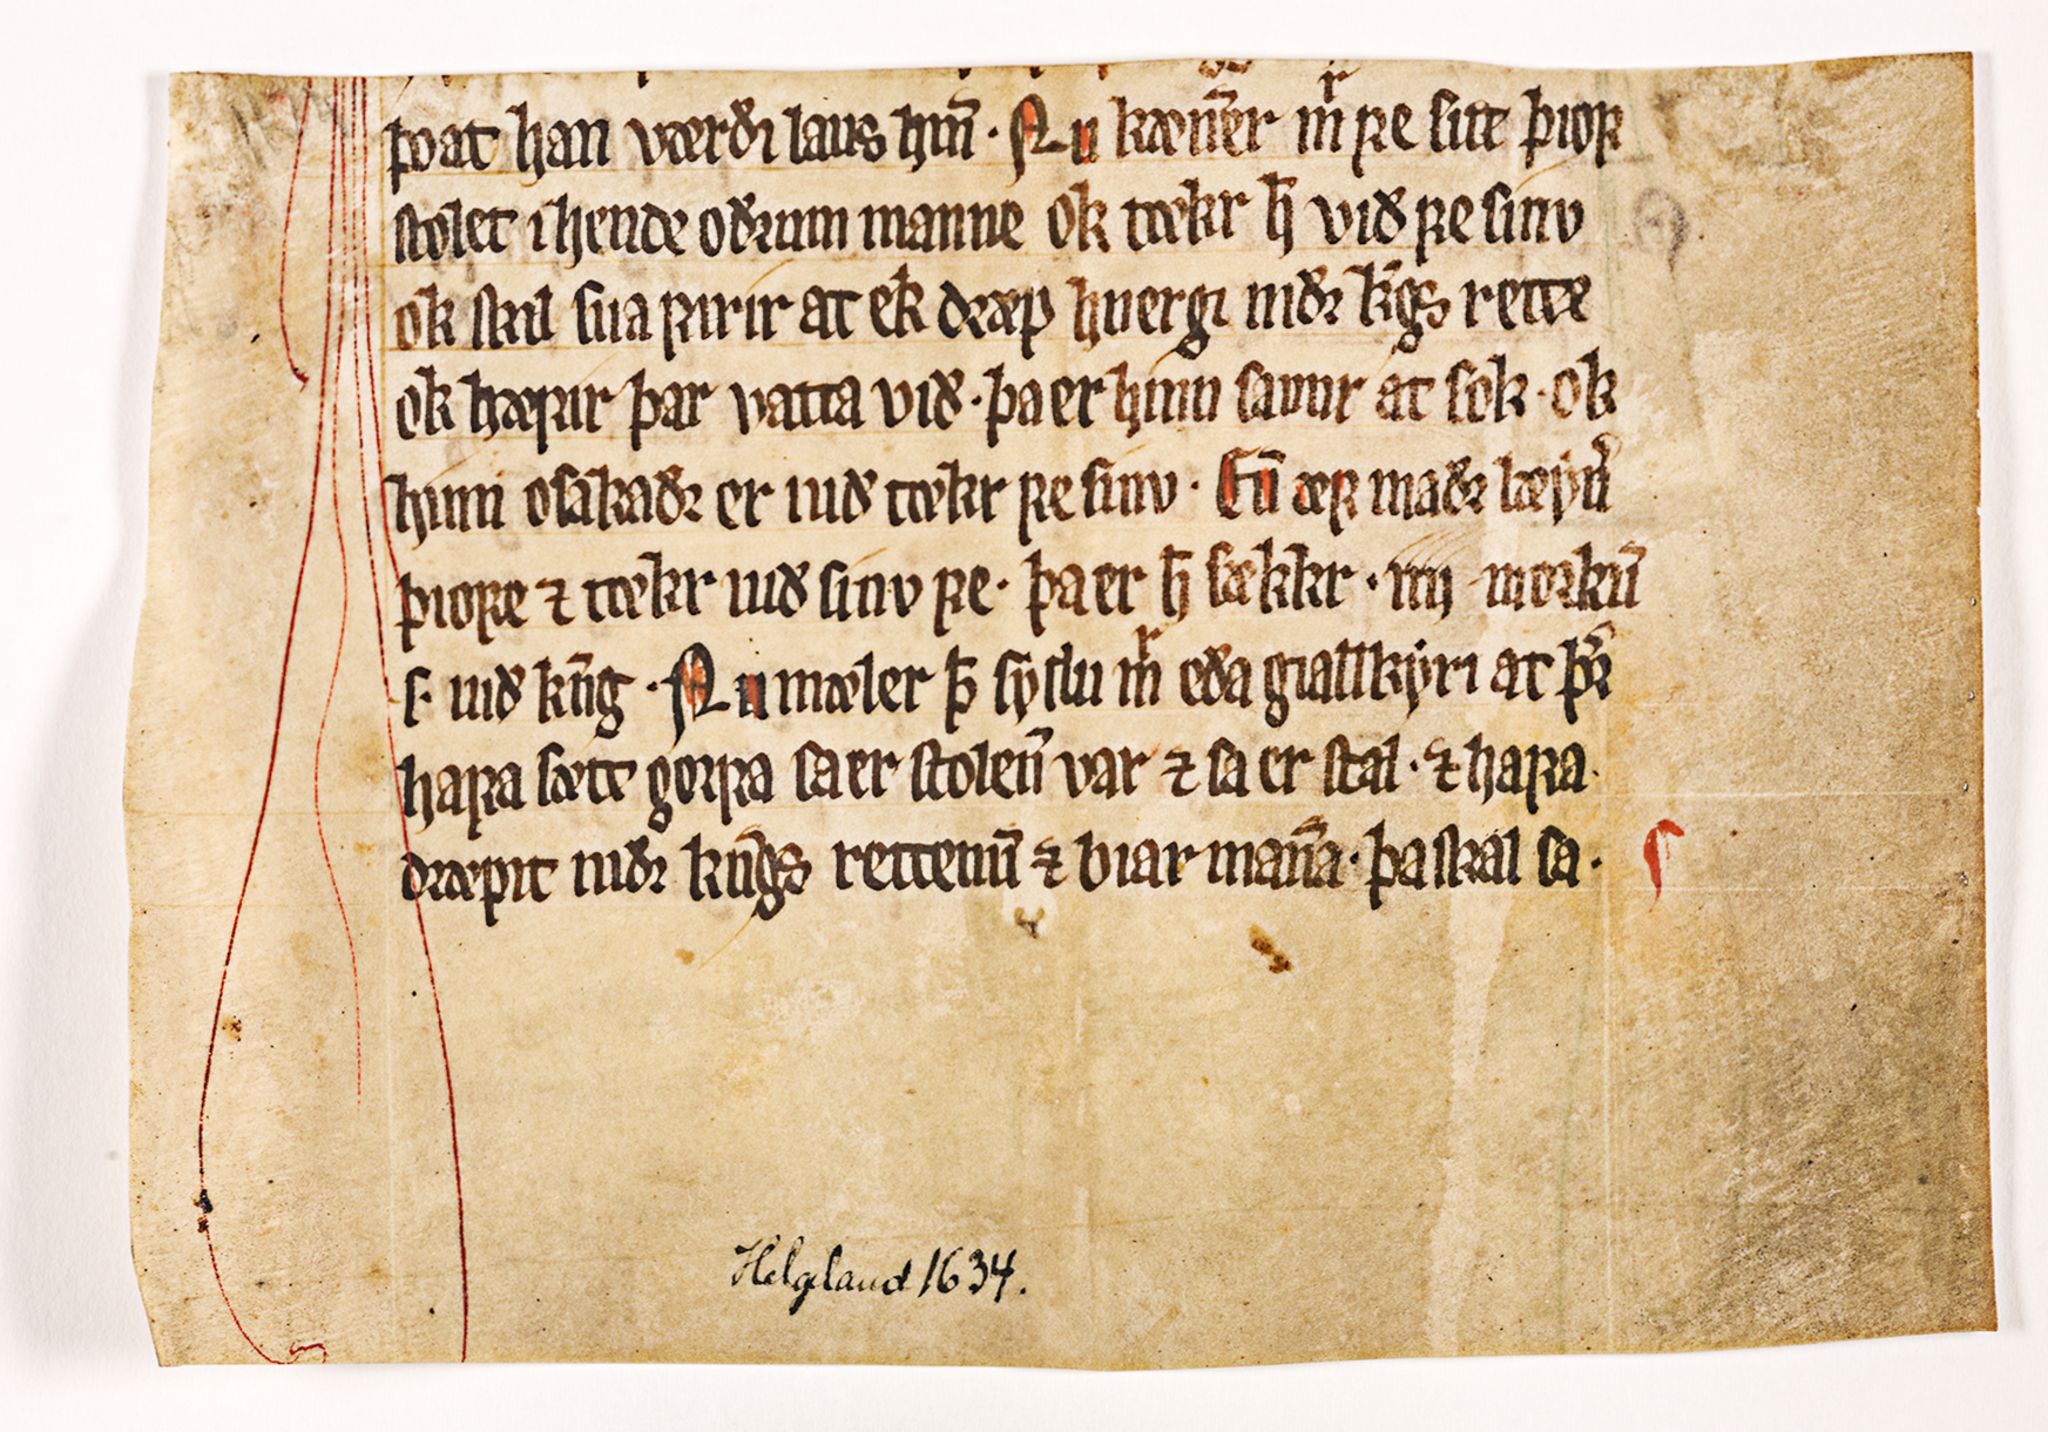 þoat han værðꝛ laus hın̄ · Nu kæn̄er mͬ ꝼe sitt þioꝼ
stolet i hende oðꝛum manne ok tækr h̄ við ꝼe sinv
ok skil sua ꝼirir at ek dræp huergi niðꝛ kḡs rette
ok hæꝼir þar vatta við · þa er hinn sannr at sok · ok
hinn osakaðꝛ er uið tækr ꝼe sinv · En̄ æꝼ maðꝛ læẏn̄
þioꝼe ⁊ tækr uið sinv ꝼe · þa er h̄ sækkr · iiij · moꝛkū
s · uið kn̄g · Nu mæler þ̄ syslu mͬ eða giallkẏri at þr̄
haꝼa sætt goꝛꝼa sa er stolen̄ var ⁊ sa er stal · ⁊ haꝼa
dræpit niðꝛ kn̄gs rettenū ⁊ biar man̄a · þa skal sa ·
Helgeland 1634.